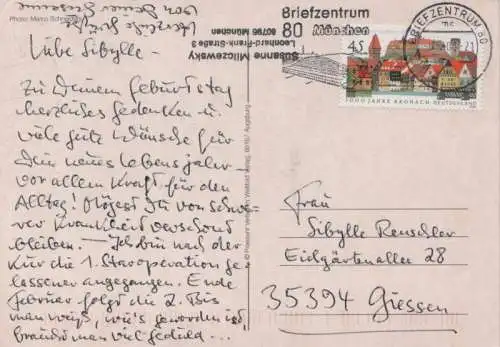 Photo: Marco Schneiders
Liebe Sibylle -
Zu Deinem Geburtstag
herzliches Gedenken u.
viele gute Wünsche für
Dein neues Lebensjahr -
vor allem Kraft für den
Alltag! Mögest Du von schwe-
rer Krankheit verschont
bleiben. - Ich bin nach der
Kur die 1. Staroperation ge-
lassener angegangen. Ende
Februar folgt die 2. Bis
man weiß, wie's geworden ist,
braucht man viel Geduld ...
Herzliche Grüße
von Deiner Susanne
Susanne Miliczewsky
Leonhard-Frank-Straße 3
80796 München
Weltbild Verlag, Augsburg
Briefzentrum
80 München
BRIEFZENTRUM 80
mc
21
45
1000 JAHRE KRONACH DEUTSCHLAND
Frau
Sibylle Renschler
Eichgärtenallee 28
35394 Giessen